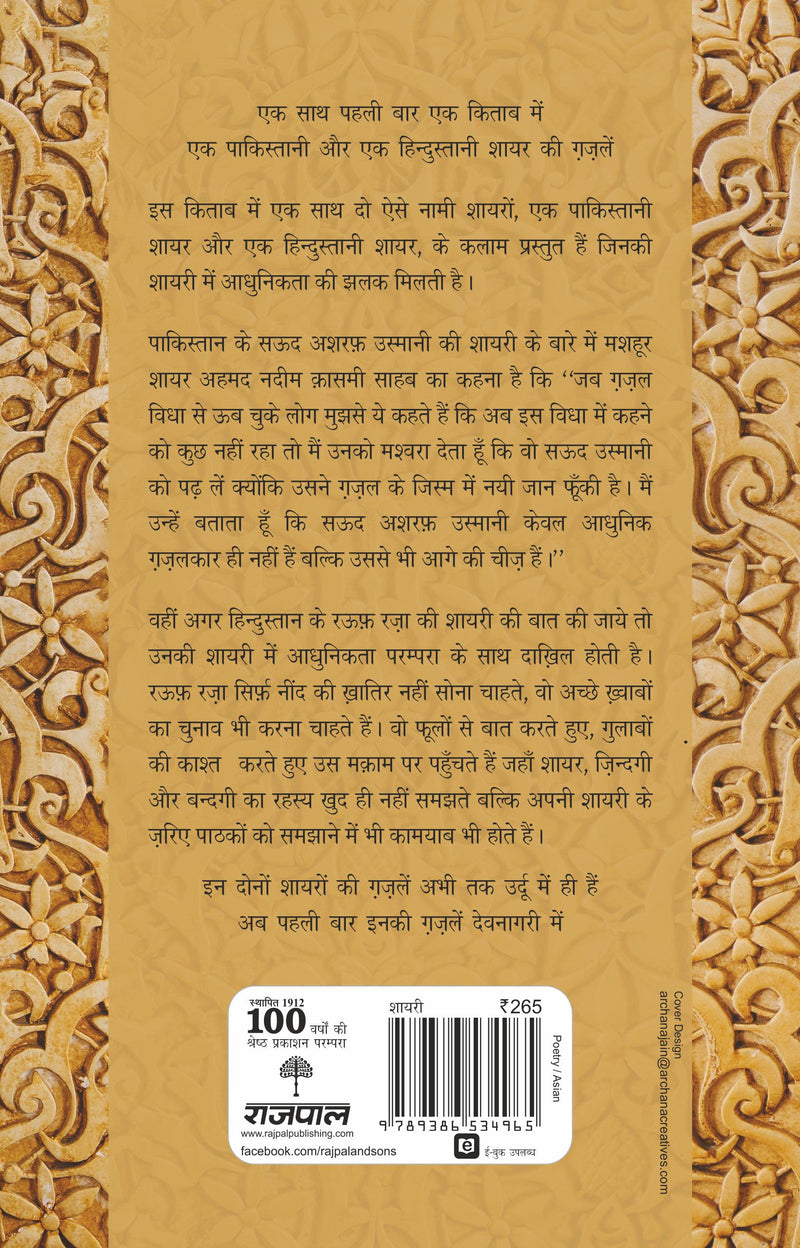 एक साथ पहली बार एक किताब में
एक पाकिस्तानी और एक हिन्दुस्तानी शायर की ग़ज़लें
इस किताब में एक साथ दो ऐसे नामी शायरों, एक पाकिस्तानी
शायर और एक हिन्दुस्तानी शायर, के कलाम प्रस्तुत हैं जिनकी
शायरी में आधुनिकता की झलक मिलती है।
पाकिस्तान के सऊद अशरफ़ उस्मानी की शायरी के बारे में मशहूर
शायर अहमद नदीम क़ासमी साहब का कहना है कि ‘‘जब ग़ज़ल
विधा से ऊब चुके लोग मुझसे ये कहते हैं कि अब इस विधा में कहने
को कुछ नहीं रहा तो मैं उनको मश्वरा देता हूँ कि वो सऊद उस्मानी
को पढ़ लें क्योंकि उसने ग़ज़ल के जिस्म में नयी जान फूँकी है। मैं
उन्हें बताता हूँ कि सऊद अशरफ़ उस्मानी केवल आधुनिक
ग़ज़लकार ही नहीं हैं बल्कि उससे भी आगे की चीज़ हैं।’’
वहीं अगर हिन्दुस्तान के रऊफ़ रज़ा की शायरी की बात की जाये तो
उनकी शायरी में आधुनिकता परम्परा के साथ दाख़िल होती है।
रऊफ़ रज़ा सिर्फ़ नींद की ख़ातिर नहीं सोना चाहते, वो अच्छे ख़्वाबों
का चुनाव भी करना चाहते हैं। वो फूलों से बात करते हुए, गुलाबों
की काश्त करते हुए उस मक़ाम पर पहुँचते हैं जहाँ शायर, ज़िन्दगी
और बन्दगी का रहस्य खुद ही नहीं समझते बल्कि अपनी शायरी के
ज़रिए पाठकों को समझाने में भी कामयाब भी होते हैं।
इन दोनों शायरों की ग़ज़लें अभी तक उर्दू में ही हैं
अब पहली बार इनकी ग़ज़लें देवनागरी में
स्थापित 1912
100 वर्षों की
श्रेष्ठ प्रकाशन परम्परा
राजपाल
www.rajpalpublishing.com
facebook.com/rajpalandsons
शायरी ₹265
9 789386 534965
ई-बुक उपलब्ध
Poetry / Asian
Cover Design
archanajain@archanacreatives.com